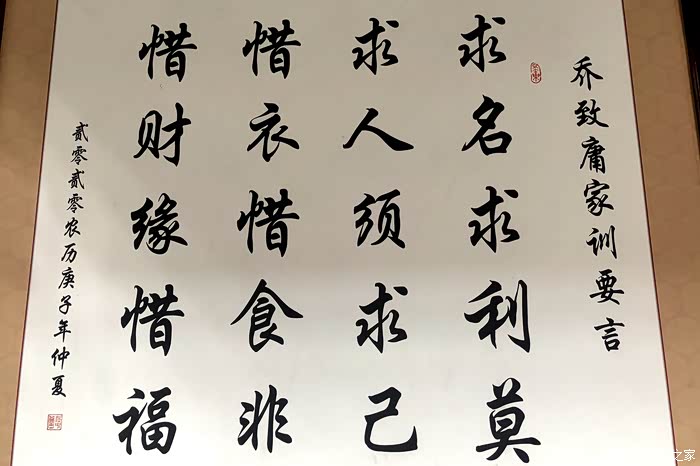 乔致庸家训要言
求名求利莫
求人须求己
惜衣惜食非
惜财缘惜福
贰零贰零农历庚子年仲夏
之家